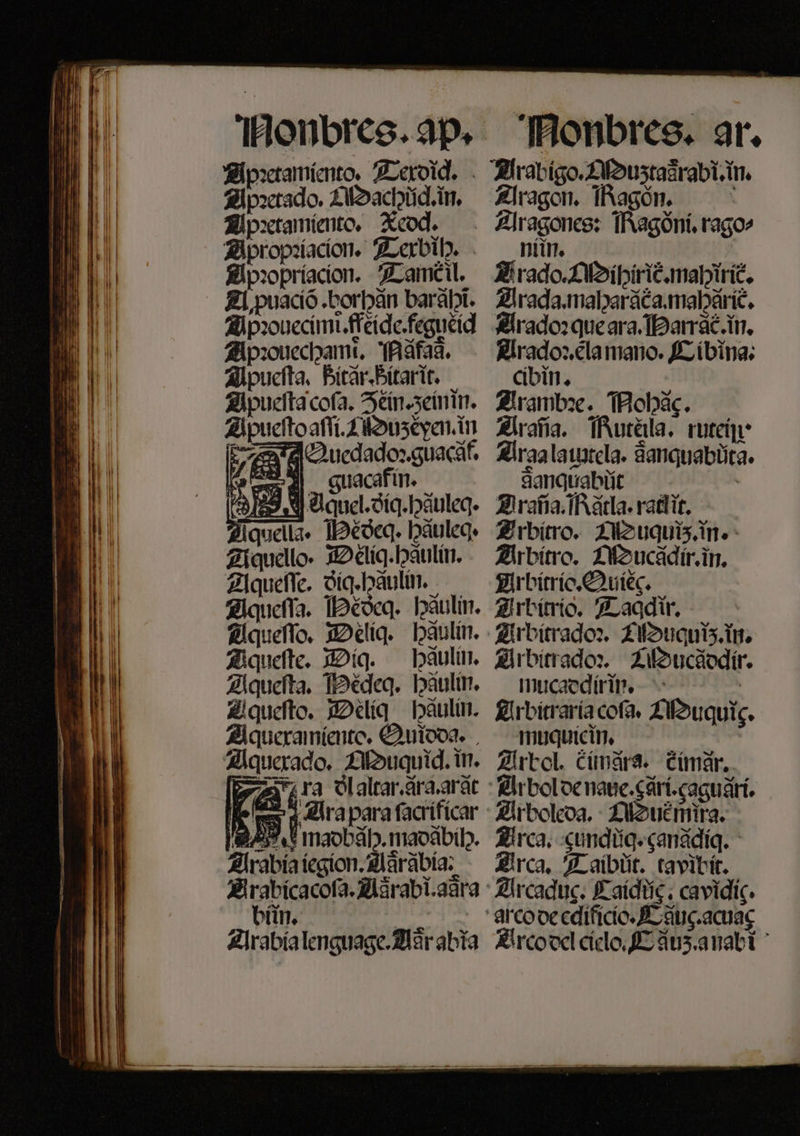 Nonbres. ap.
Apretamiento. Teroid. .
Apretado. Muachüd.in.
Apretamiento. Xcod.
Apropriacion. Terbib. .
Apropriacion. Tamcil.
Aprouecimi.ffeide.fegueid
Aprouechami. Nâfaâ.
Apuesta. Bitâr.bitarit.
Apuesta cosa. Zéin.zeinin.
Apuesto assi. Muzéyen.in
Quedador.guacâf.
guacafin.
Aquel. diq.hâuleq.
Aquella. Hédeq. hâuleq.
Aquello. Déliq.hâulin.
Aquesse. diq.hâulin.
Aquessa. Hédeq. hâulin.
Aquesso. Déliq. hâulin.
Aqueste. Diq. hâulin.
Aquesta. Hédeq. hâulin.
Aquesto. Déliq hâulin.
Aquexamiento. Quiooa. .
Aquexado. Muuquid. in.
ra dl altar.âra.arât
Ara para sacrificar
maobâh.maoâbih.
Arabia region. Aârâbia:
Arabica cosa. Aârabi.aâra
biin.
Arabia lenguage. Aârabia
Nonbres. ar.
Arabigo. Muustaârabi.in.
Aragon. Ragôn.
Aragones: Ragôni. rago=
niin.
Arada.maharâça.mahâric.
Arador que ara. Harrâc.in.
Arador. dela mano. Cibina:
cibin.
Arambre. Nohâç.
Araña. Rutêla. rutein=
âanquabüt
Araña. Râtla. ratlit.
Arbitro. Muuquiz.in.
Arbitro. Muucâdir.in.
Arbitrio. Quiéç.
Arbitrio. Taqdir.
Arbitrador. Muuquiz.in.
Arbitrador. Muucâodir.
mucaodirin.
Arbitraria cosa. Muuquiç.
muquicin.
Arbol. cimâra. cimâr.
Arbol de naue.çâri.çaguâri.
Arboleoa. Muucmira.
Arca. çundüq.çanâdiq.
Arca. Taibüt. tavibit.
Arcaduç. Caidüç. cavidiç.
arco de edificio. Câuç.acuaç
Arco del cielo. Câuz.anabi